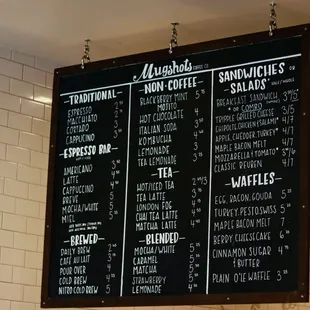 Mugshots COFFEE CO.
TRADITIONAL
ESPRESSO 2
MACCHIATO
CORTADO 3
CAPPUCCINO 3
ESPRESSO BAR
AMERICANO 3
LATTE 4
CAPPUCCINO
BREVE
MOCHA/WHITE 5
MIEL 5
BREWED
DAILY BREW
CAFE AU LAIT 3
POUR OVER 4
COLD BREW 4
NITRO COLD BREW 5
NON-COFFEE
BLACKBERRY MINT 5
MOJITO
HOT CHOCOLATE 4
ITALIAN SODA 3
KOMBUCHA 4
LEMONADE 3
TEA LEMONADE 3
TEA
HOT/ICED TEA 2
TEA LATTE 4
LONDON FOG 4
CHAI TEA LATTE 4
MATCHA LATTE 5
BLENDED
MOCHA/WHITE 5
CARAMEL 5
MATCHA 5
STRAWBERRY 5
LEMONADE 4
SANDWICHES OR
SALADS
BREAKFAST SANDWICH 3/5
OR COMBO
TRIPLE GRILLED CHEESE 3/5
CHIPOTLE CHICKEN SALAD 4/8
APPLE CHEDDAR TURKEY 4/7
MAPLE BACON MELT 4/7
MOZZARELLA/TOMATO 3/5
CLASSIC REUBEN 4/7
WAFFLES
EGG, BACON, GOUDA 5
TURKEY, PESTO, SWISS 7
MAPLE BACON MELT 7
BERRY, CHEESECAKE 6
CINNAMON SUGAR 4
& BUTTER
PLAIN O'LE WAFFLE 3